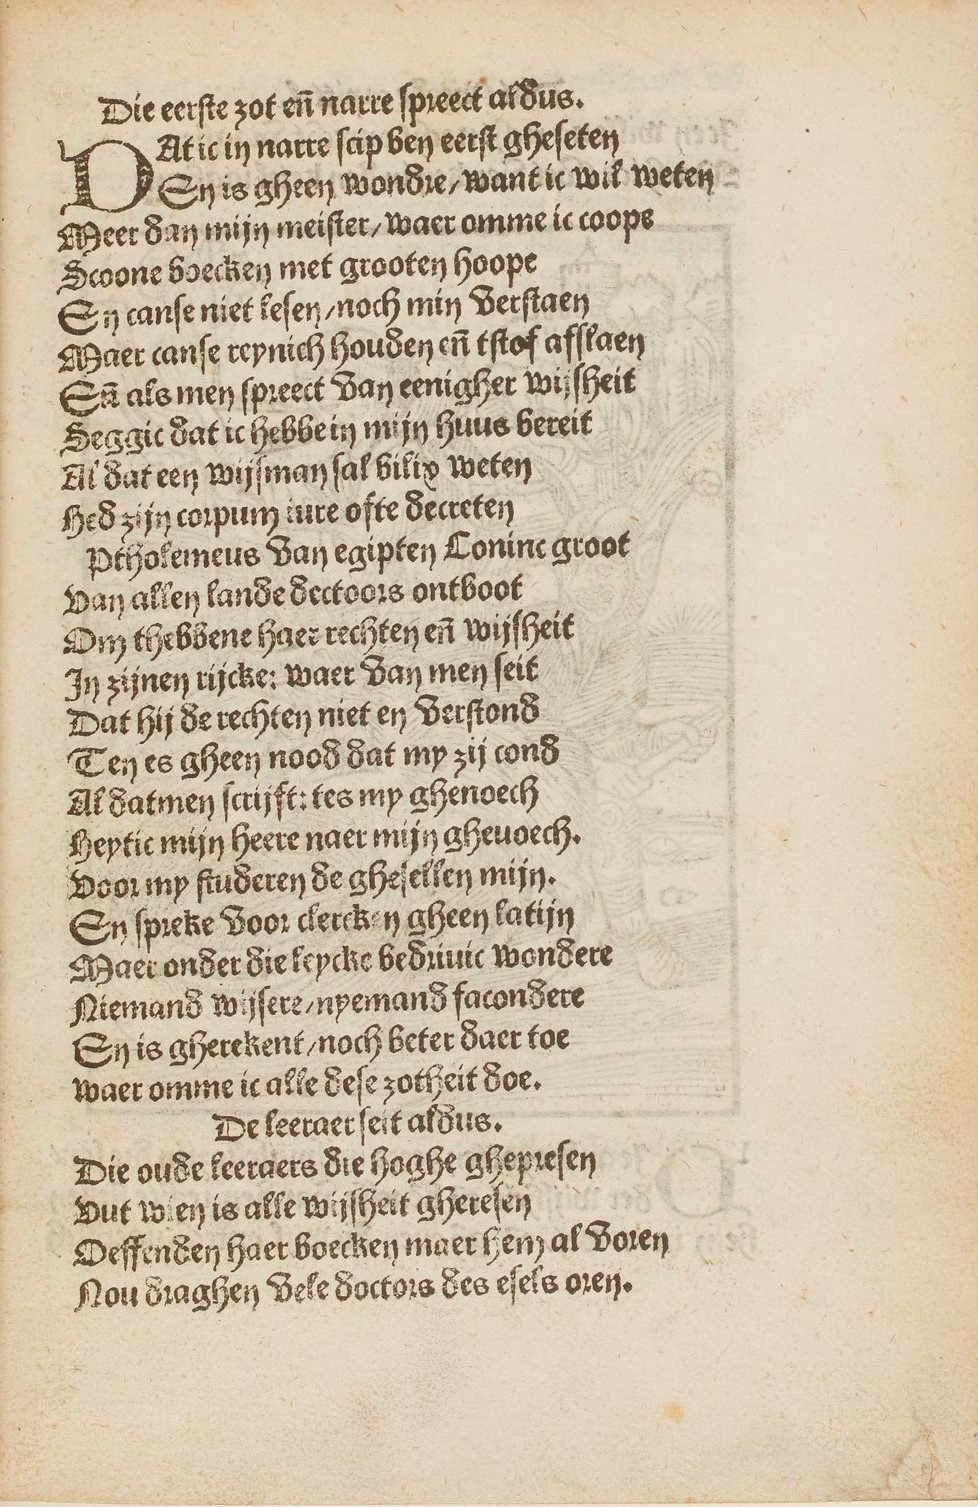 Die eerste zot en̄ narre spreect aldus.
DAt ic in narre scip ben eerst gheseten
En is gheen wondre/want ic wil weten
Meer dan mijn meister/waer omme ic coope
Scoone boecken met grooten hoope
En canse niet lesen/noch min verstaen
Maer canse reynich houden en̄ tstof afslaen
En̄ als men spreect van eenigher wijsheit
Seggic dat ic hebbe in mijn huus bereit
Al dat een wijsman sal bilix weten
Hed zijn corpum iure ofte decreten
Ptholemeus van egipten Coninc groot
Van allen lande doctoors ontboot
Om thebbene haer rechten en̄ wijsheit
In zijnen rijcke: waer van men seit
Dat hij de rechten niet en verstond
Ten es gheen nood dat my zij cond
Al datmen scrijft: tes my ghenoech
Heytic mijn heere naer mijn ghevoech.
Voor my studeren de ghesellen mijn.
En spreke voor clercken gheen latijn
Maer onder die leycke bedriuic wondere
Niemand wijsere/nyemand facondere
En is gherekent/noch beter daer toe
waer omme ic alle dese zotheit doe.
De leeraer seit aldus.
Die oude leeraers die hoghe ghepresen
Vut wien is alle wijsheit gheresen
Oeffenden haer boecken maer hem al voren
Nou draghen vele doctors des esels oren.